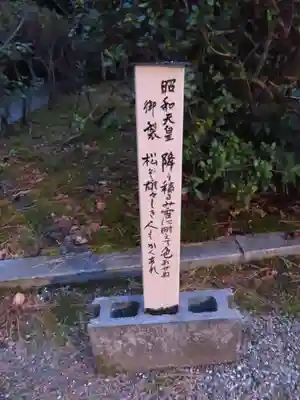 昭和天皇 降り積るみ雪に耐えて色かえぬ
御製 松ぞ雄々しき人もかくあれ